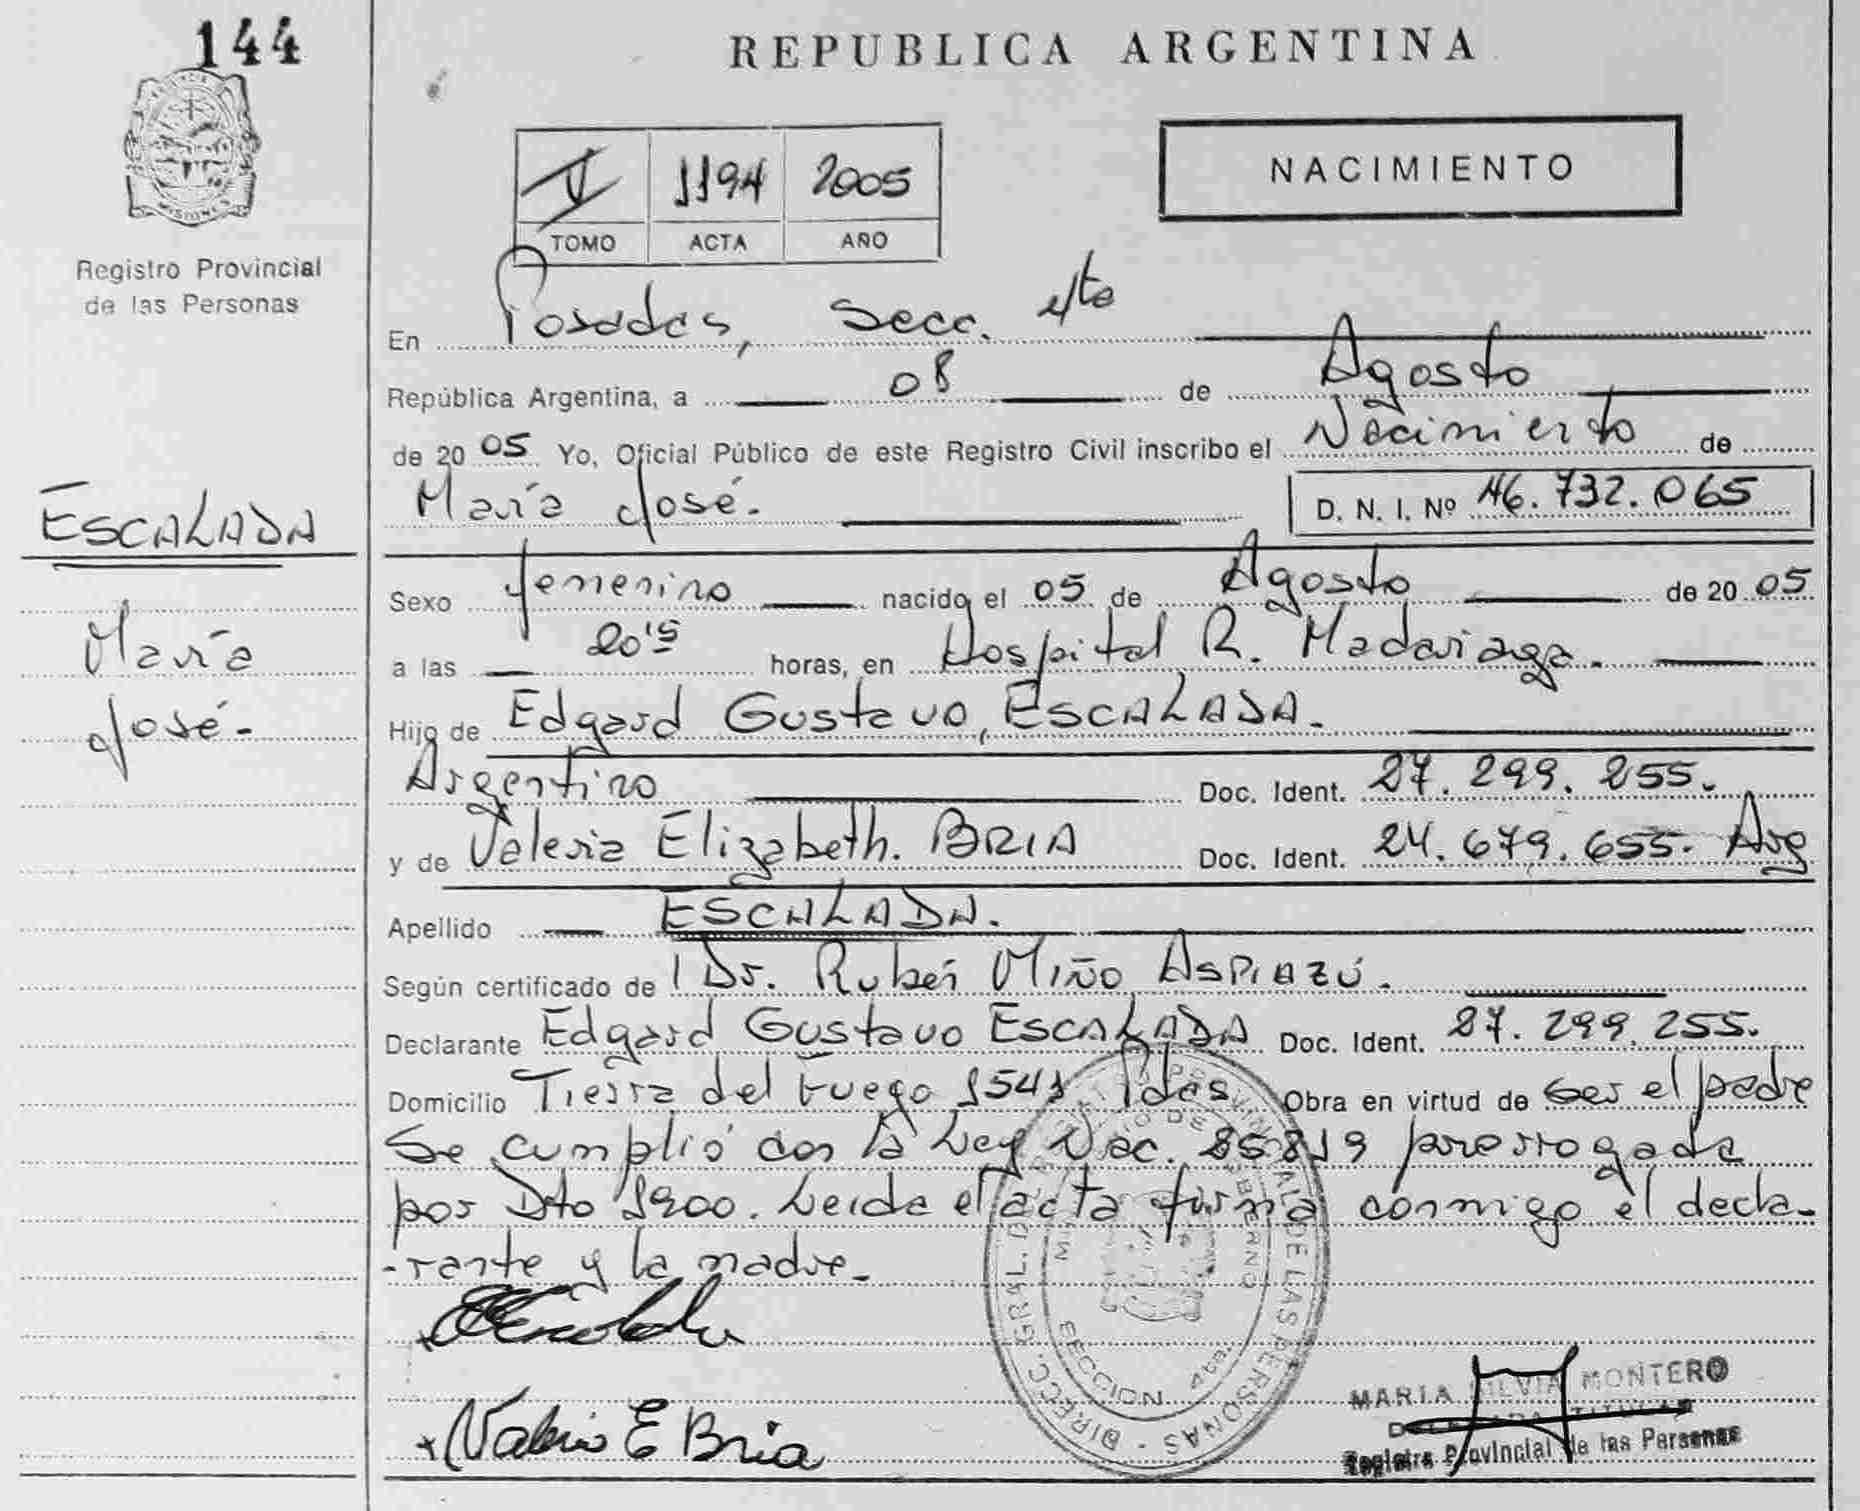 144
REPUBLICA ARGENTINA
MISIONES
Registro Provincial
de las Personas
V 1194 2005
TOMO ACTA AÑO
NACIMIENTO
En Posadas, Secc. 4ta
República Argentina, a 08 de Agosto
de 2005 Yo, Oficial Público de este Registro Civil inscribo el Nacimiento de
María José. D. N. I. Nº 46.732.065
ESCALADA
María
José.-
Sexo femenino nacido el 05 de Agosto de 2005
a las 20'15 horas, en Hospital R. Madariaga.
Hijo de Edgard Gustavo, ESCALADA.
Argentino Doc. Ident. 27.299.255.
y de Valeria Elizabeth. BRIA Doc. Ident. 24.679.655. Arg
Apellido ESCALADA.
Según certificado de Dr. Rubén MIÑO ASPIAZÚ.
Declarante Edgard Gustavo ESCALADA Doc. Ident. 27.299.255.
Domicilio Tierra del Fuego 1541 Pdas Obra en virtud de ser el padre
Se cumplió con la Ley Nac. 25819 prorrogada
por Dto 1900. Leída el acta firma conmigo el decla-
-rante y la madre.
DIRECC. GRAL. DE LAS PERSONAS
SECCION 4ta.
Valeria E Bria
MARIA SILVIA MONTERO
DELEGADA TITULAR
Registro Provincial de las Personas